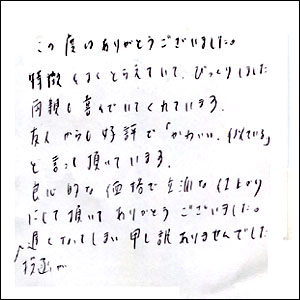 この度はありがとうございました。
特徴よくとらえていて、びっくりしました
両親も喜んでいてくれています。
友人からも好評で「かわいい、似ている」
と言って頂いています。
良心的な価格で立派な仕上がり
にして頂いてありがとうございました。
遅くなってしまい申し訳ありませんでした